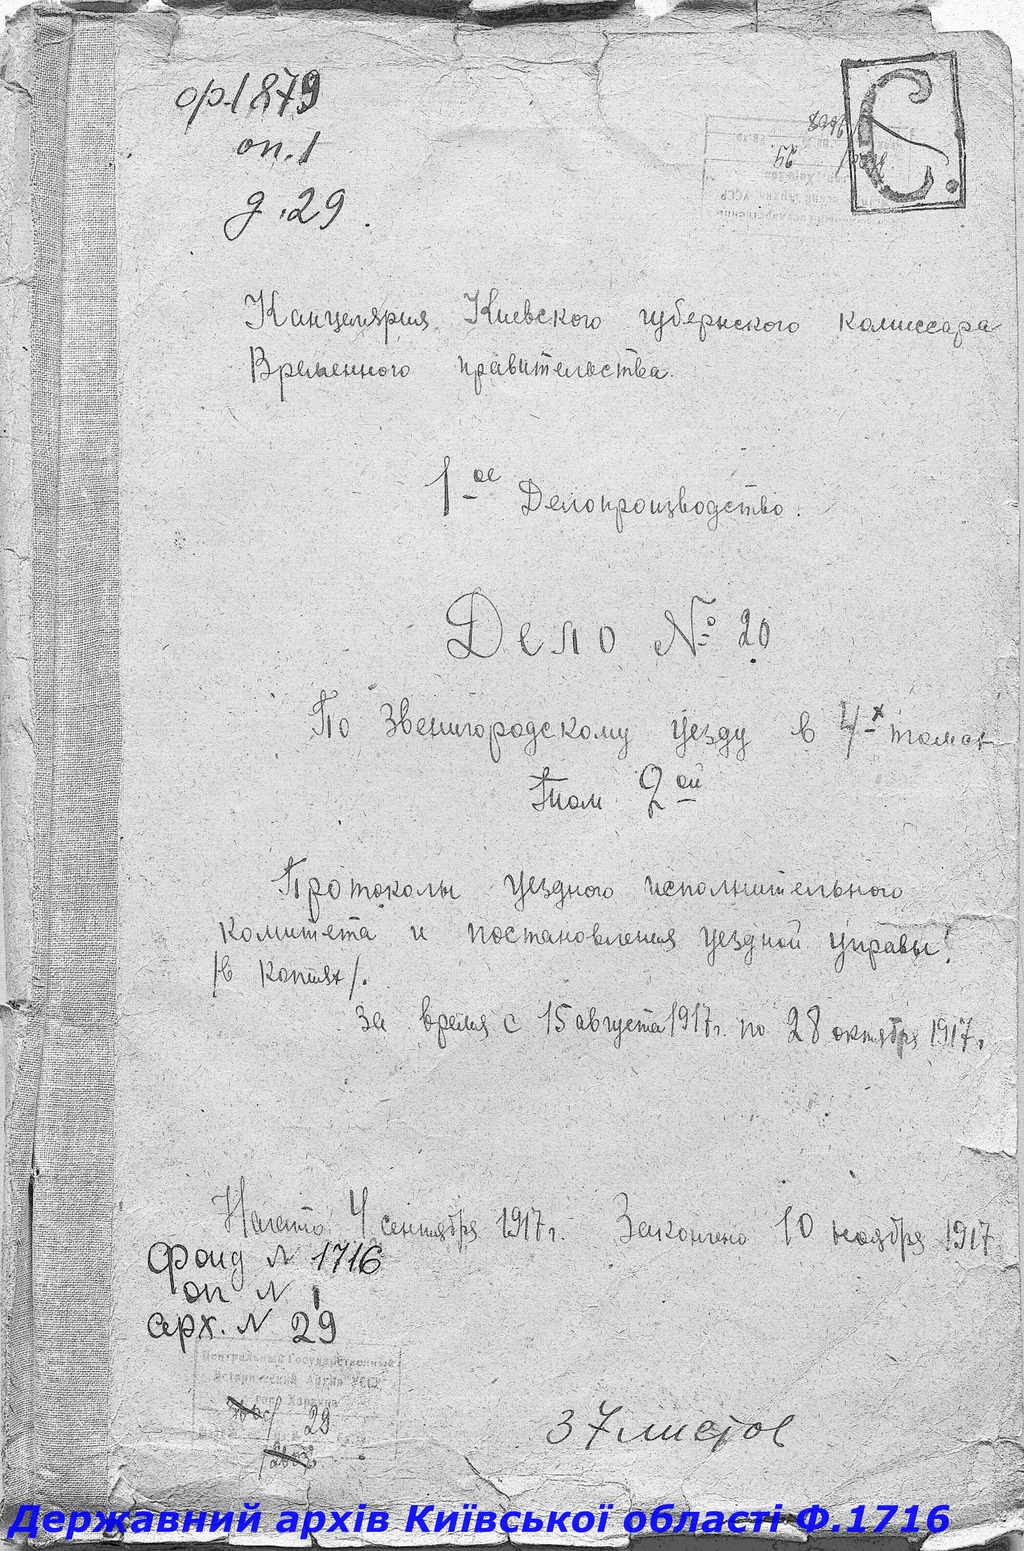 ф.1879
оп.1
д.29.
Канцелярия Киевского губернского комиссара
Временного правительства.
1-ое Делопроизводство.
Дело № 20
По Звенигородскому уезду в 4-х томах
Том 2ой
Протоколы уездного исполнительного
комитета и постановления уездной управы.
/в копиях/.
за время с 15 августа 1917г. по 28 октября 1917г.
Начато 4 сентября 1917г. Закончено 10 ноября 1917
Фонд N 1716
оп N 1
арх. N 29
Центральный Государственный
Исторический Архив УССР
29
37 листов
Державний архів Київської області Ф.1716